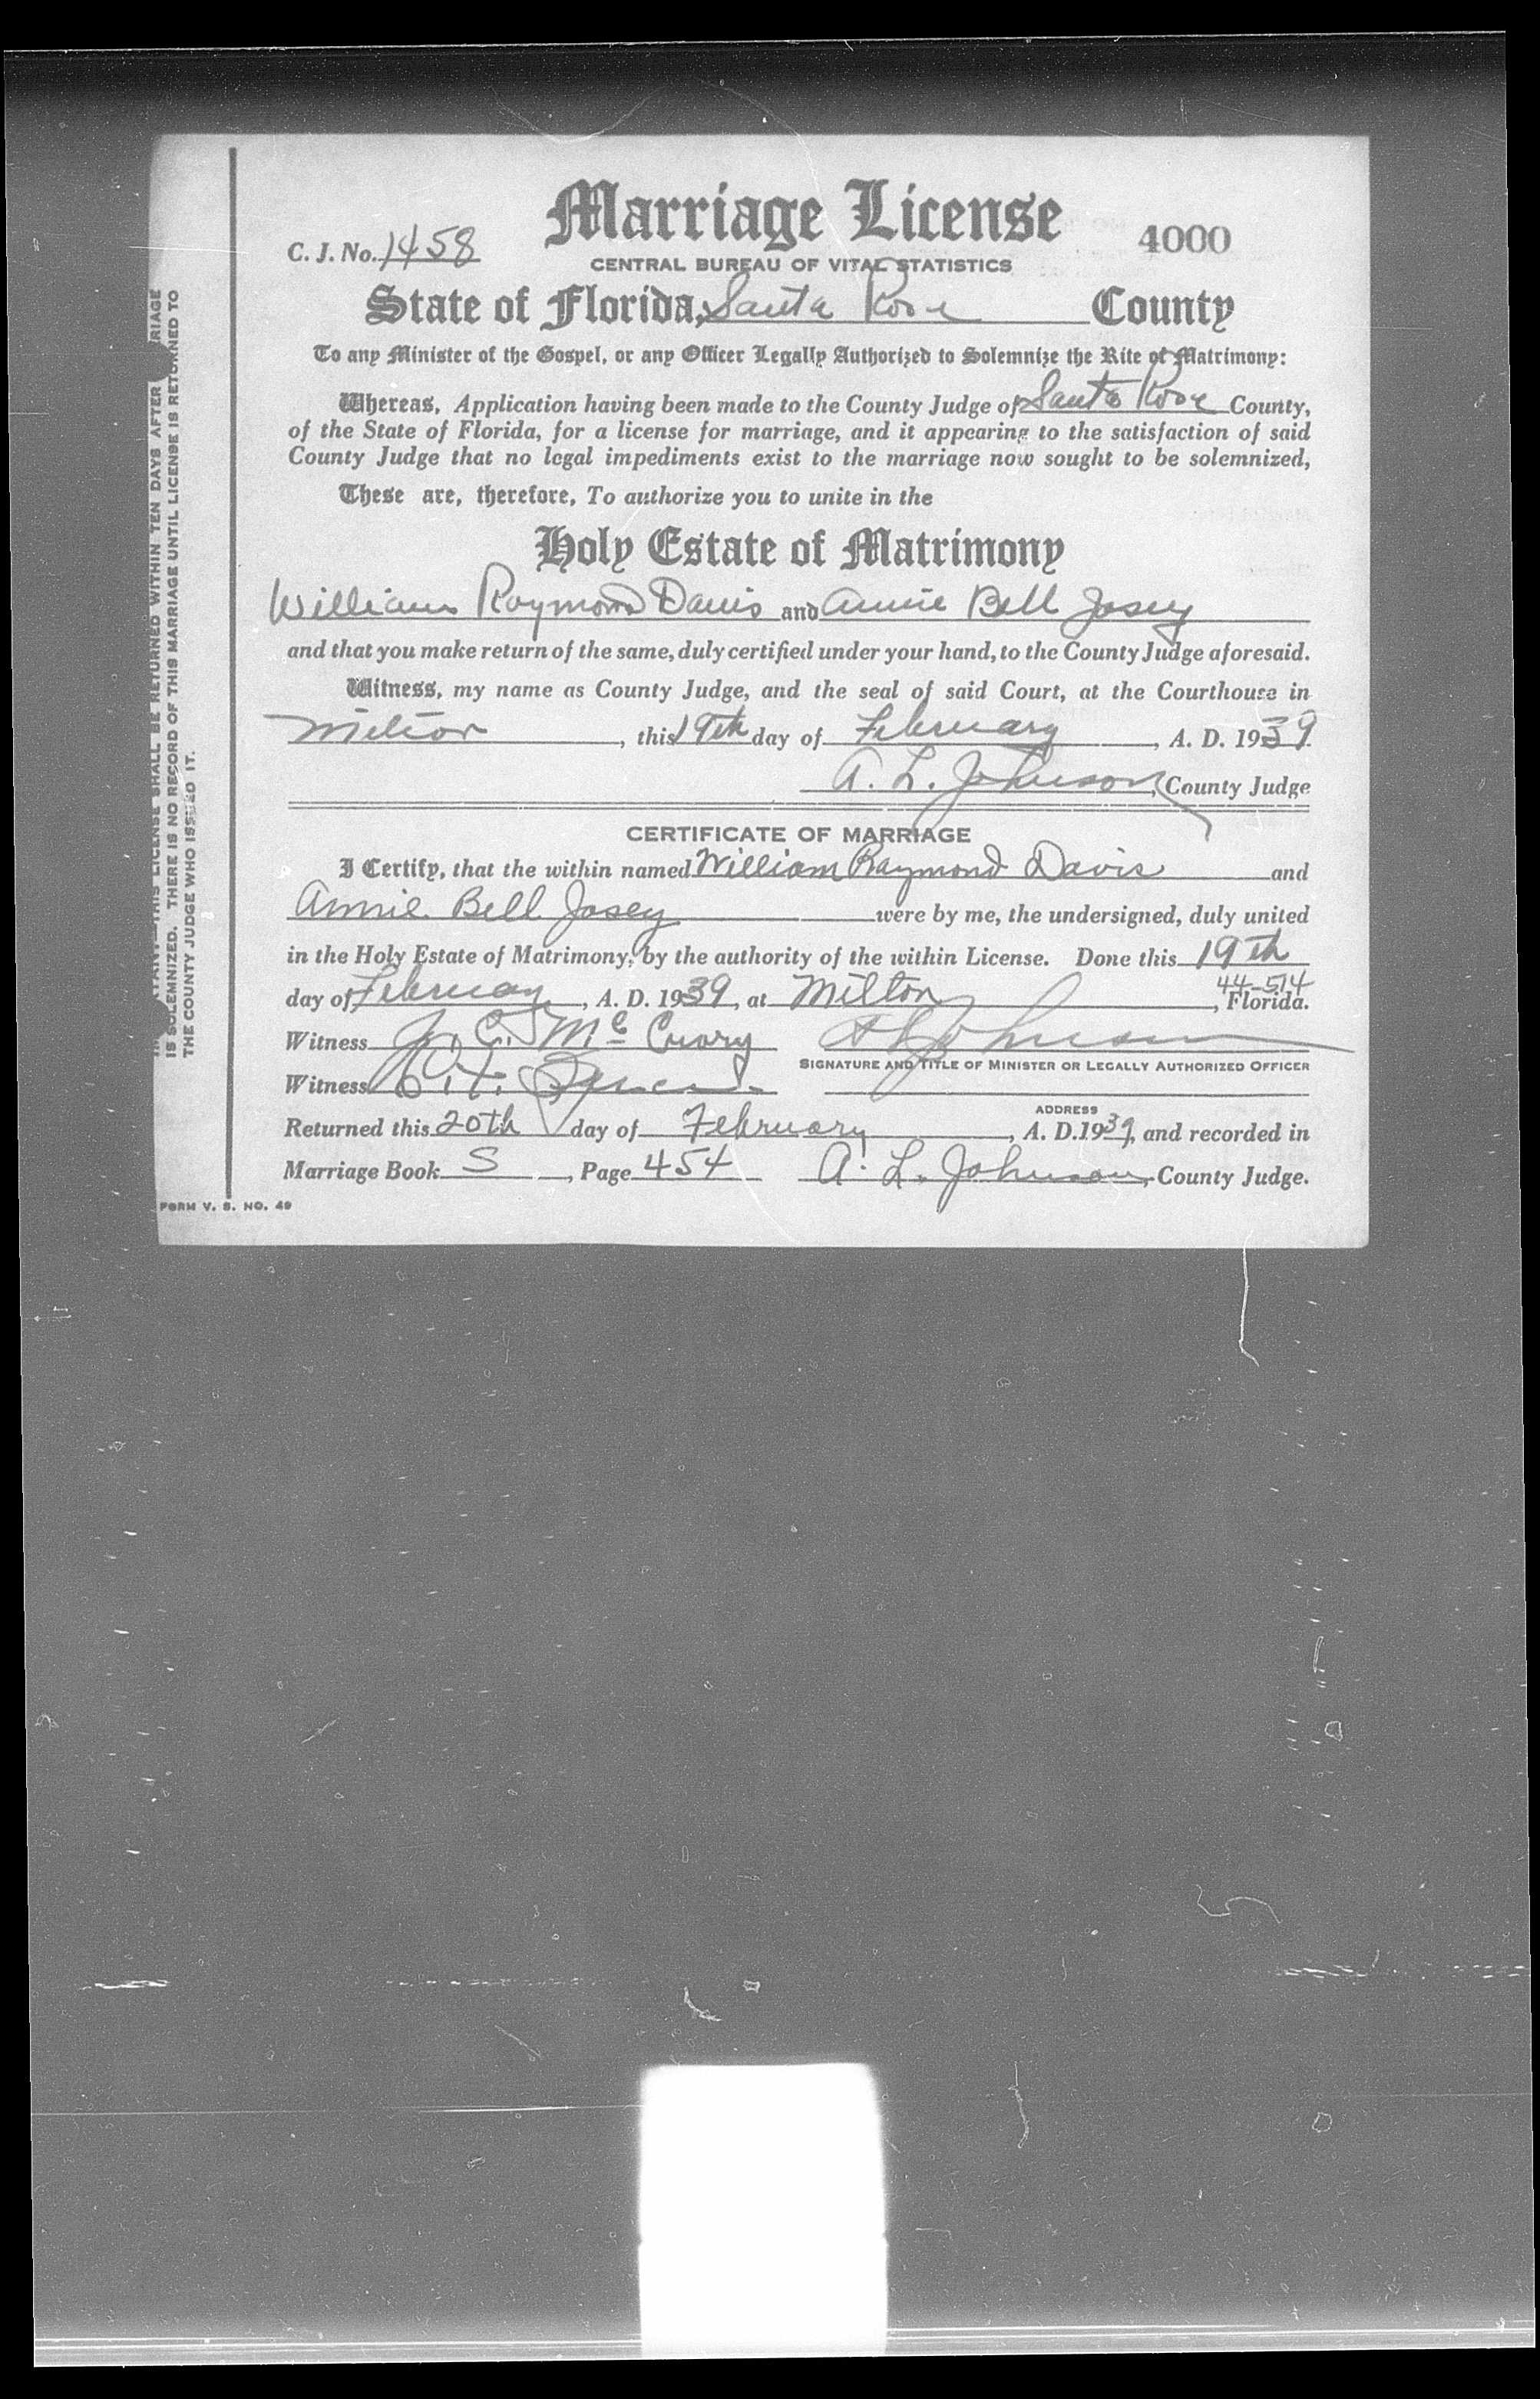 Marriage License
C. J. No. 1458
4000
CENTRAL BUREAU OF VITAL STATISTICS
State of Florida, Santa Rosa County
To any Minister of the Gospel, or any Officer Legally Authorized to Solemnize the Rite of Matrimony:
Whereas, Application having been made to the County Judge of Santa Rosa County,
of the State of Florida, for a license for marriage, and it appearing to the satisfaction of said
County Judge that no legal impediments exist to the marriage now sought to be solemnized,
These are, therefore, To authorize you to unite in the
Holy Estate of Matrimony
William Raymond Davis and Annie Bell Josey
and that you make return of the same, duly certified under your hand, to the County Judge aforesaid.
Witness, my name as County Judge, and the seal of said Court, at the Courthouse in
Milton, this 19th day of February, A. D. 1939
A. L. Johnson, County Judge
CERTIFICATE OF MARRIAGE
I Certify, that the within named William Raymond Davis and
Annie Bell Josey were by me, the undersigned, duly united
in the Holy Estate of Matrimony, by the authority of the within License. Done this 19th
44-514
day of February, A. D. 1939, at Milton, Florida.
Witness J. C. McCrary A L Johnson
SIGNATURE AND TITLE OF MINISTER OR LEGALLY AUTHORIZED OFFICER
Witness
ADDRESS
Returned this 20th day of February, A. D. 1939, and recorded in
Marriage Book S, Page 454 A. L. Johnson, County Judge.
FORM V. S. NO. 49
THIS LICENSE SHALL BE RETURNED WITHIN TEN DAYS AFTER
IS SOLEMNIZED. THERE IS NO RECORD OF THIS MARRIAGE UNTIL LICENSE IS RETURNED TO
THE COUNTY JUDGE WHO ISSUED IT.